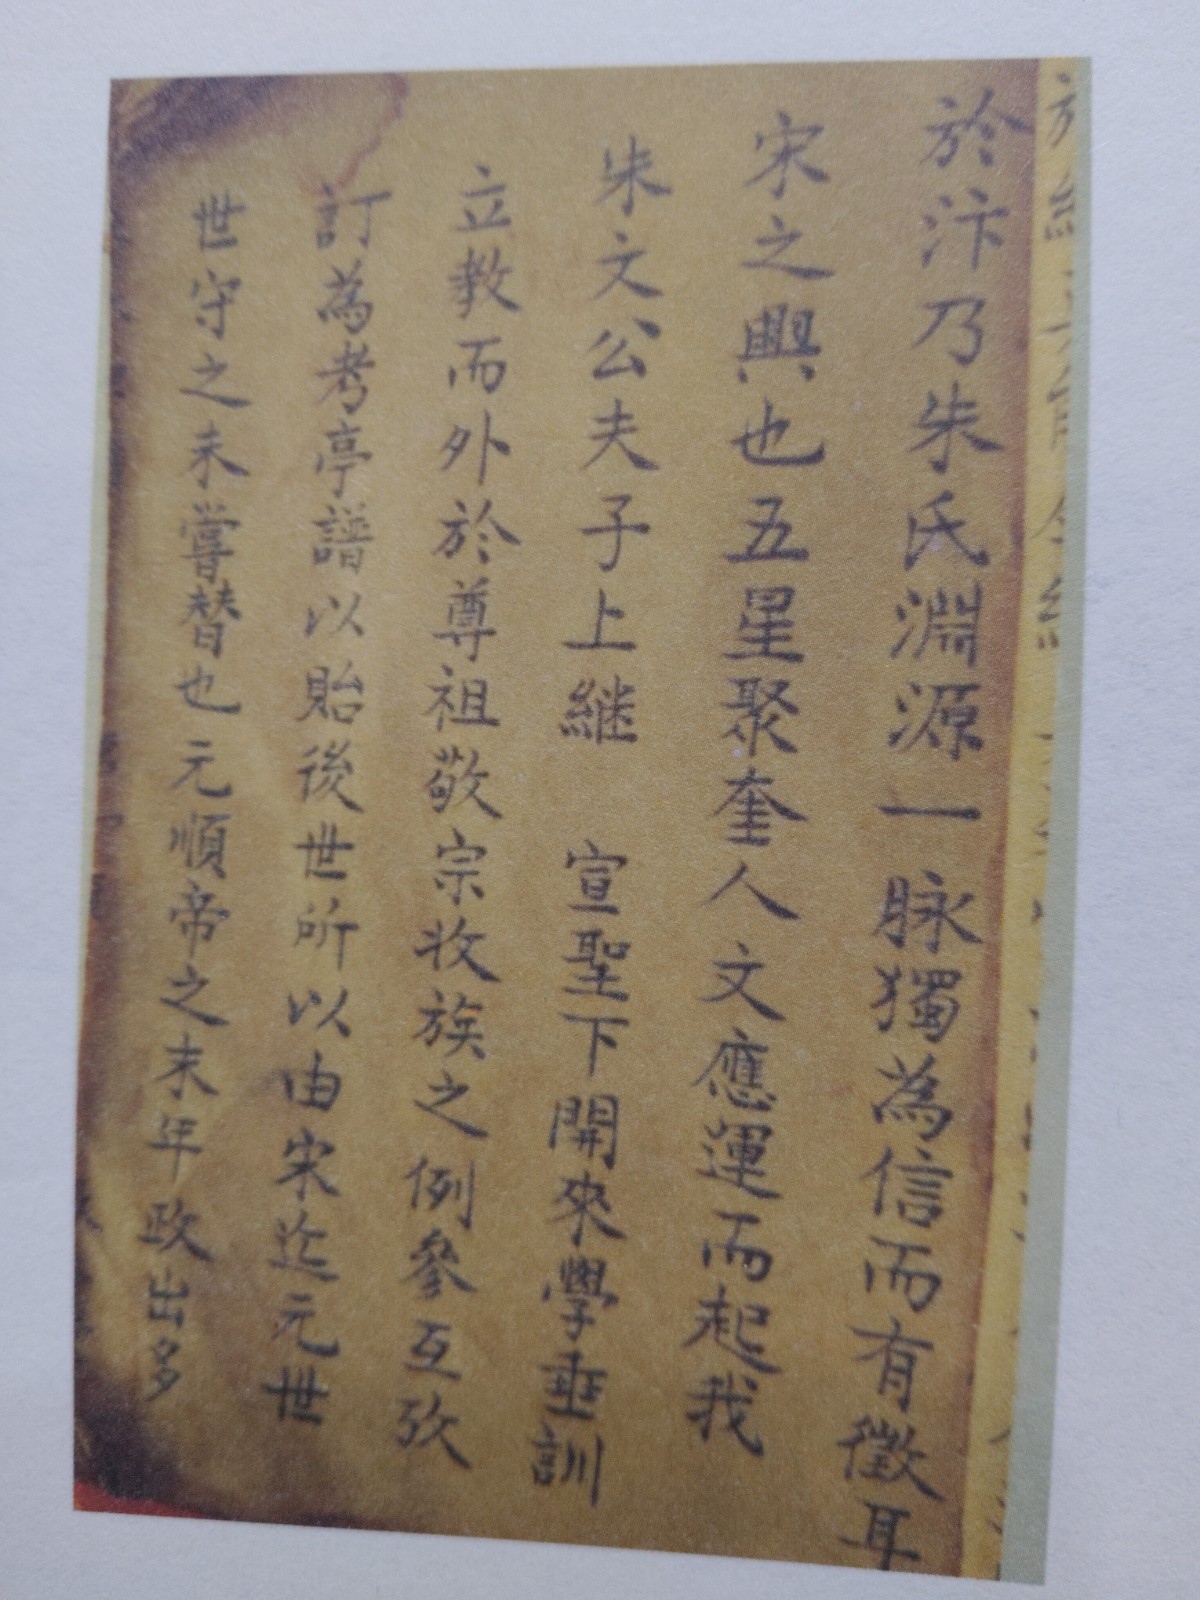 於汴乃朱氏淵源一脉獨為信而有徵耳
宋之興也五星聚奎人文應運而起我
朱文公夫子上継 宣聖下開來學垂訓
立教而外於尊祖敬宗收族之例參互攷
訂為考亭譜以貽後世所以由宋迄元世
世守之未嘗替也元順帝之末年政出多